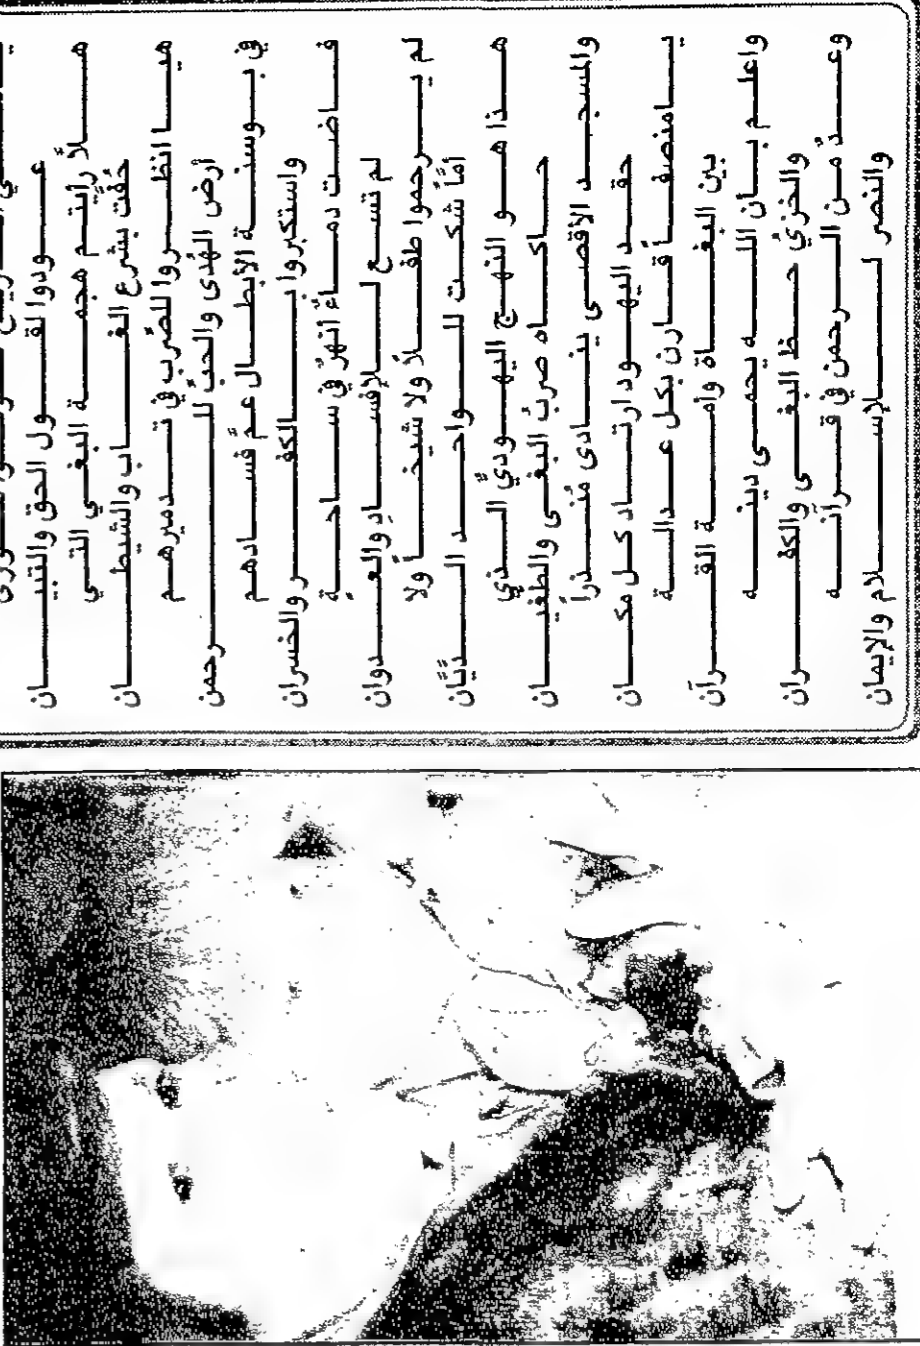 عودوا لقول الحق والتبيان
هلاَّ رأيتم هجمة البغي التي
حُفَّت بشرع الغاب والشيطان
هيا انظروا للصِّرب في تدميرهم
أرض الهُدى والحبِّ للرحمن
في بوسنة الأبطال عمَّ فسادهم
واستكبروا بالكفر والخسران
فاضت دماءٌ أنهرٌ في ساحة
لم تسع للإفساد والعدوان
لم يرحموا طفلاً ولا شيخاً ولا
أمَّا شكت للواحد الديَّان
هذا هو النهج اليهوديِّ الذي
حاكاه صربُ البغى والطغيان
والمسجد الأقصى ينادى مُنذراً
حقد اليهود ارتاد كل مكان
يامنصفاً قارن بكل عدالة
بين البغاة وأمة القرآن
واعلم بأن الله يحمى دينه
والخزيُ حظ البغى والكفران
وعدٌ من الرحمن في قرآنه
والنصر للإسلام والإيمان